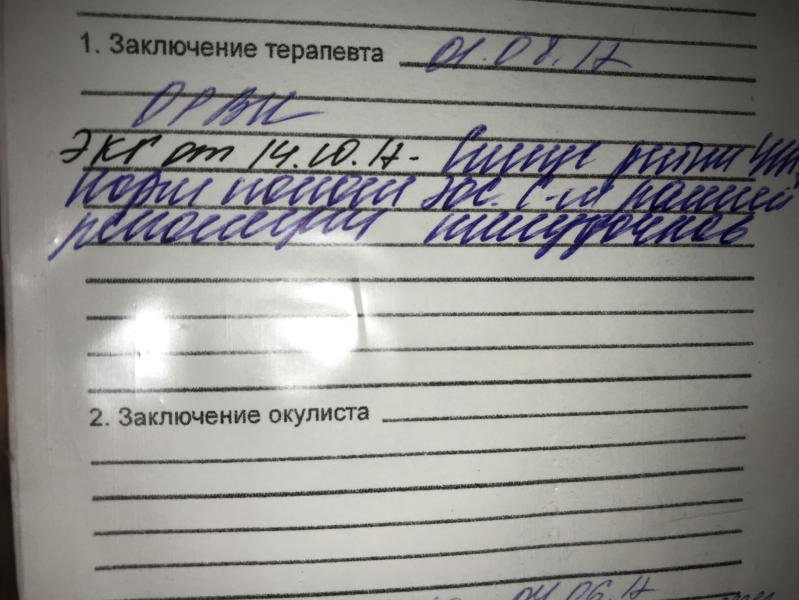 1. Заключение терапевта 01.08.17
ОРВИ
ЭКГ от 14.10.17- Синус ритм
норм полож эос. С-м ранней
реполяризации желудочков
2. Заключение окулиста
04.06.17